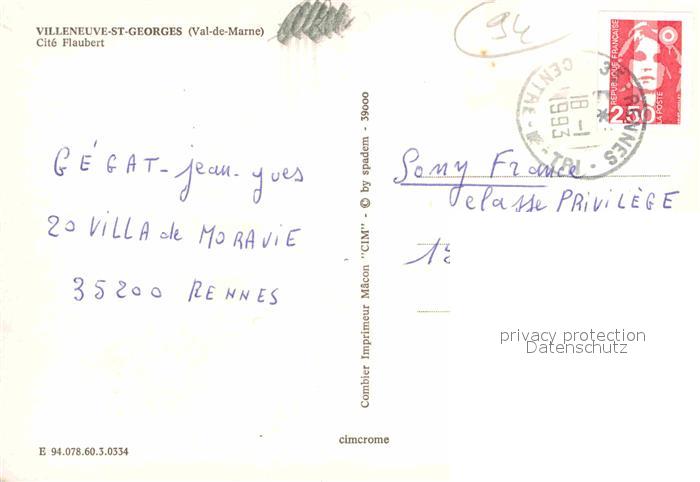 VILLENEUVE-ST-GEORGES (Val-de-Marne)
Cité Flaubert
94
RÉPUBLIQUE FRANÇAISE
2,50
LA POSTE
RENNES
CENTRE - TRI
18-1
1993
GÉGAT-jean-yves
20 VILLA de MORAVIE
35200 RENNES
Sony France
classe PRIVILÈGE
Combier Imprimeur Mâcon "CIM" - © by spadem - 39000
privacy protection
Datenschutz
cimcrome
E 94.078.60.3.0334